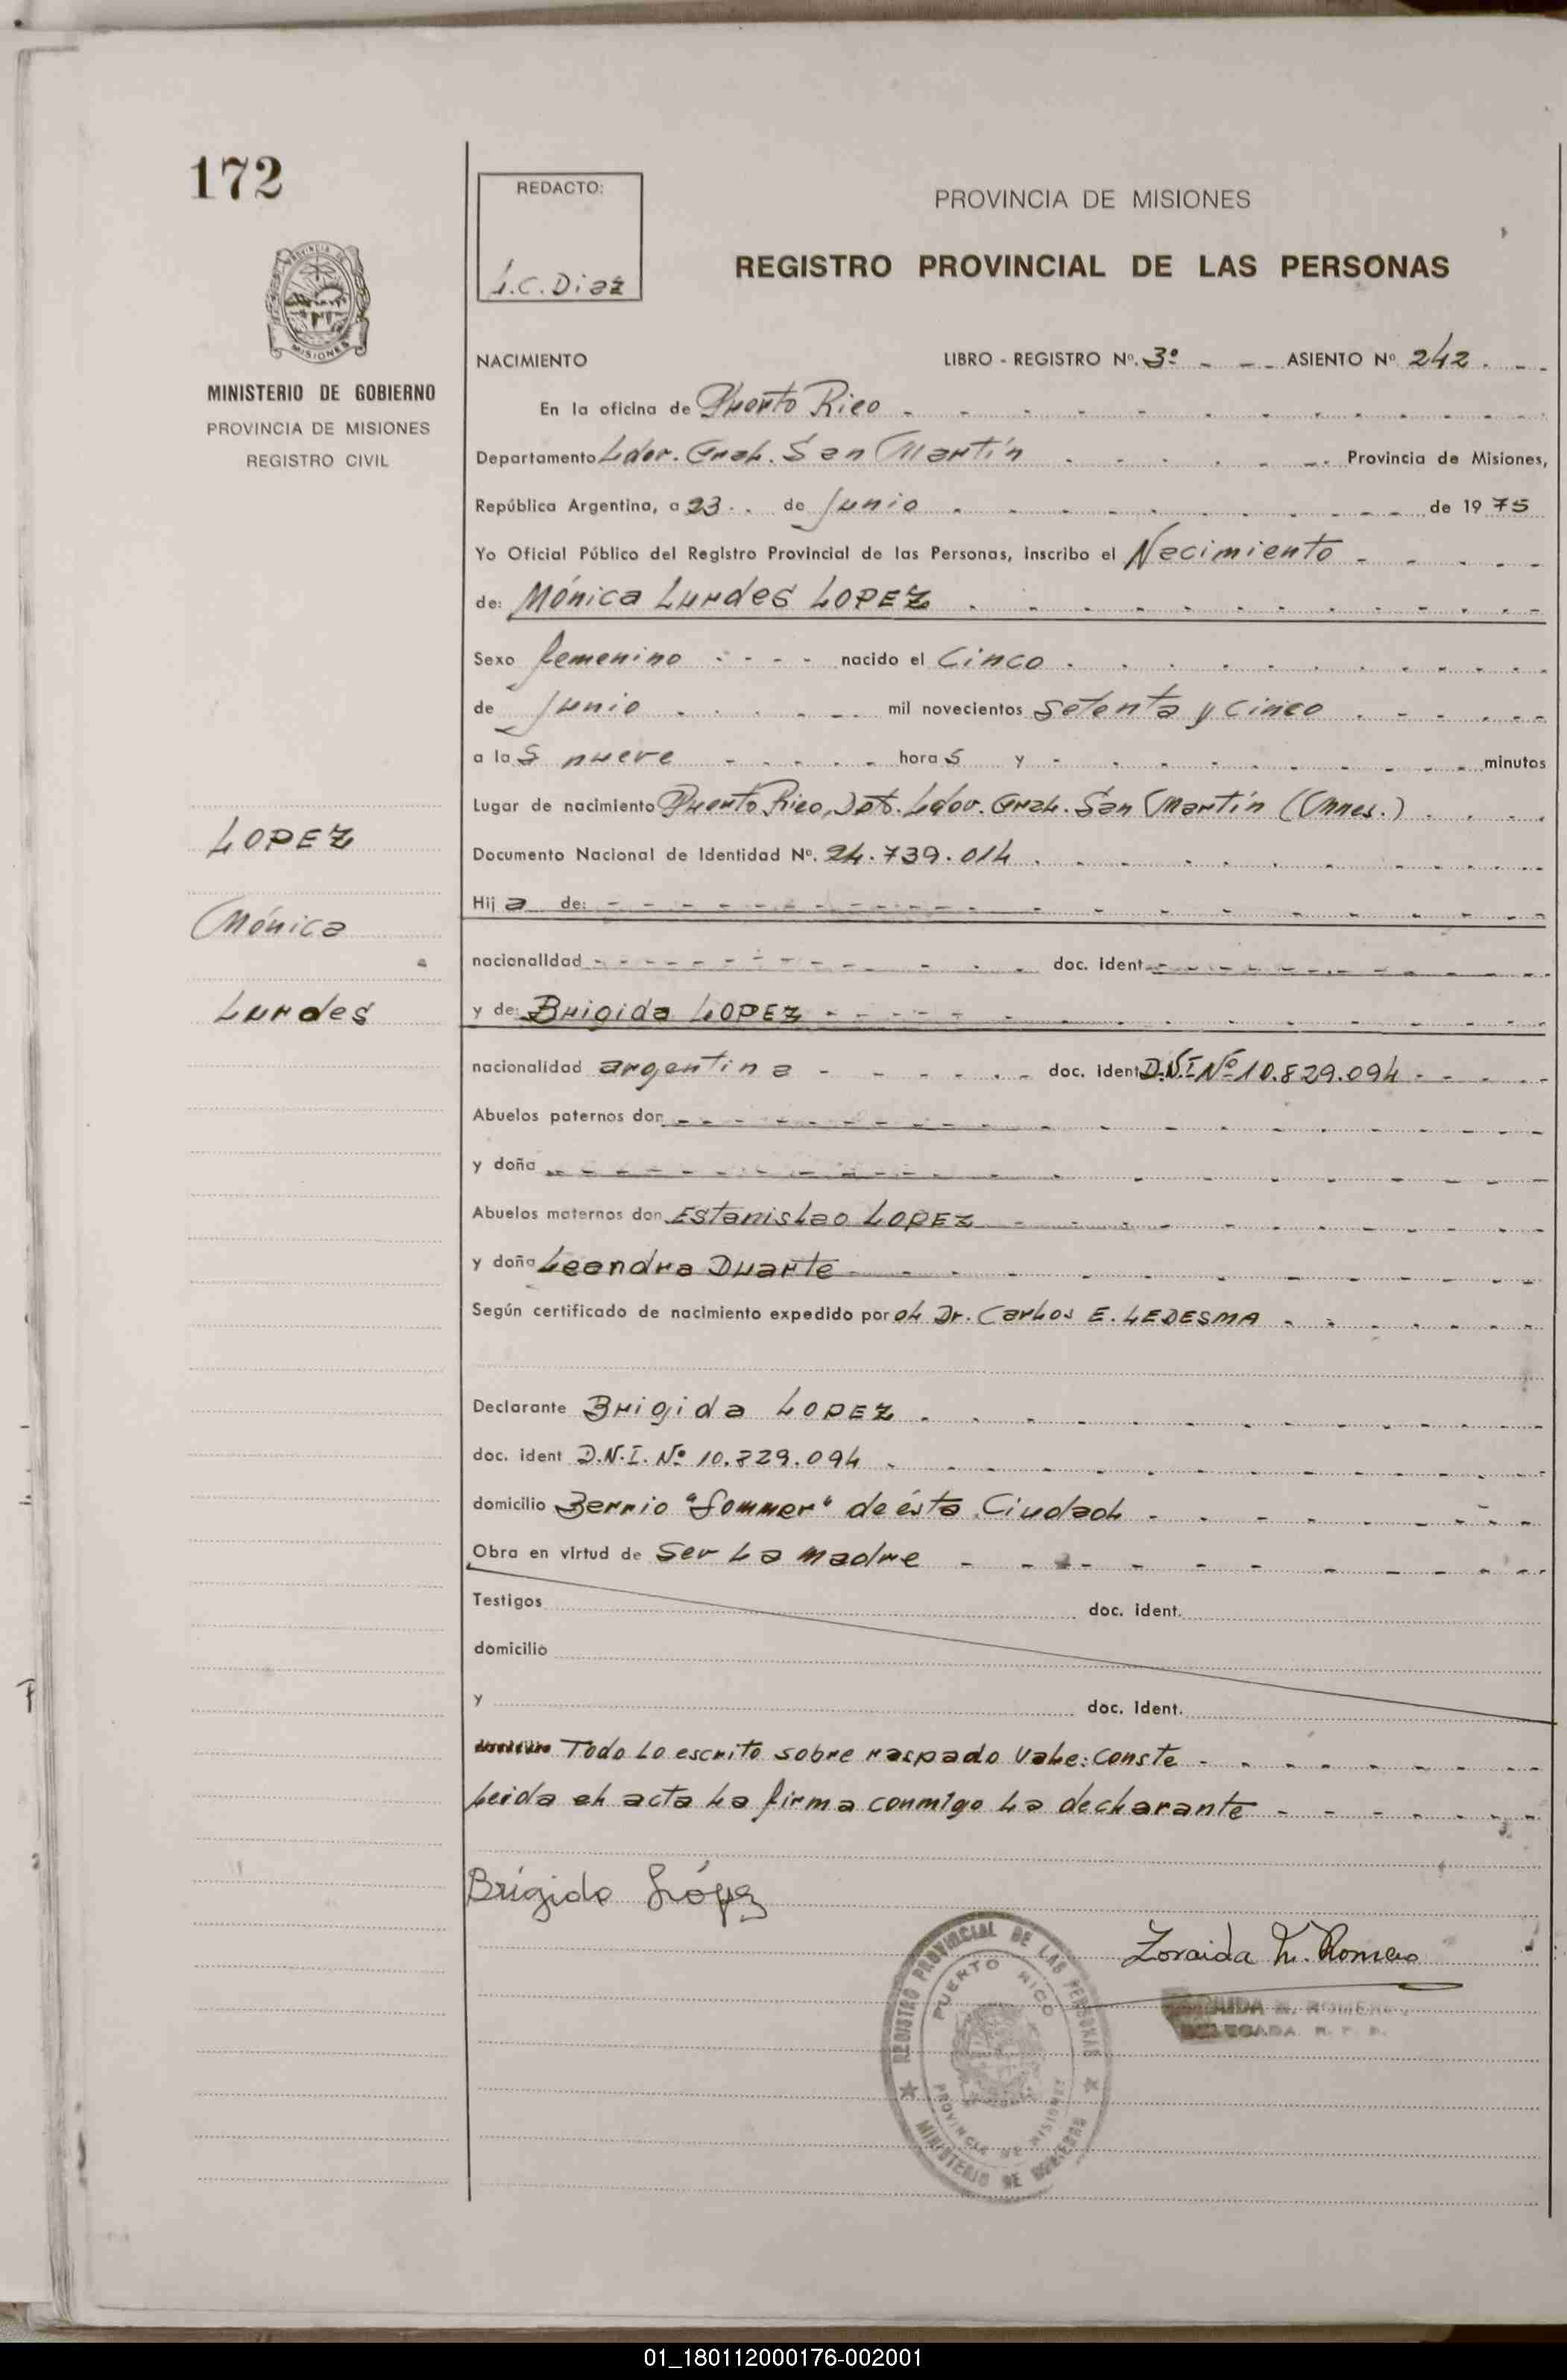 172
REDACTO:
L.C. Diaz
PROVINCIA DE MISIONES
REGISTRO PROVINCIAL DE LAS PERSONAS
MISIONES
MINISTERIO DE GOBIERNO
PROVINCIA DE MISIONES
REGISTRO CIVIL
NACIMIENTO LIBRO - REGISTRO Nº. 3º - - - ASIENTO Nº 242
En la oficina de Puerto Rico
Departamento Ldor. Gral. San Martín Provincia de Misiones,
República Argentina, a 23 de Junio de 1975
Yo Oficial Público del Registro Provincial de las Personas, inscribo el Nacimiento
de: Mónica Lurdes LOPEZ
Sexo femenino nacido el Cinco
de Junio mil novecientos Setenta y Cinco
a las nueve horas y - minutos
Lugar de nacimiento Puerto Rico, Dpt. Ldor. Gral. San Martín (Mnes.)
Documento Nacional de Identidad Nº. 24.739.014
Hija de:
nacionalidad doc. ident.
y de: Brigida LOPEZ
nacionalidad argentina doc. ident D.N.I Nº 10.829.094
Abuelos paternos don
y doña
Abuelos maternos don Estanislao LOPEZ
y doña Leandra Duarte
Según certificado de nacimiento expedido por el Dr. Carlos E. LEDESMA
Declarante Brigida LOPEZ
doc. ident D.N.I. Nº 10.829.094
domicilio Barrio "Sommer" de ésta Ciudad
Obra en virtud de Ser La madre
Testigos doc. ident.
domicilio
y doc. ident.
Todo Lo escrito sobre raspado Vale: Conste
Leida el acta La firma conmigo La declarante
LOPEZ
Mónica
Lurdes
Brígida López
Zoraida N. Romero
ZORAIDA N. ROMERO
DELEGADA R. P. P.
REGISTRO PROVINCIAL DE LAS PERSONAS
PUERTO RICO
PROVINCIA DE MISIONES
MINISTERIO DE GOBIERNO
01_180112000176-002001